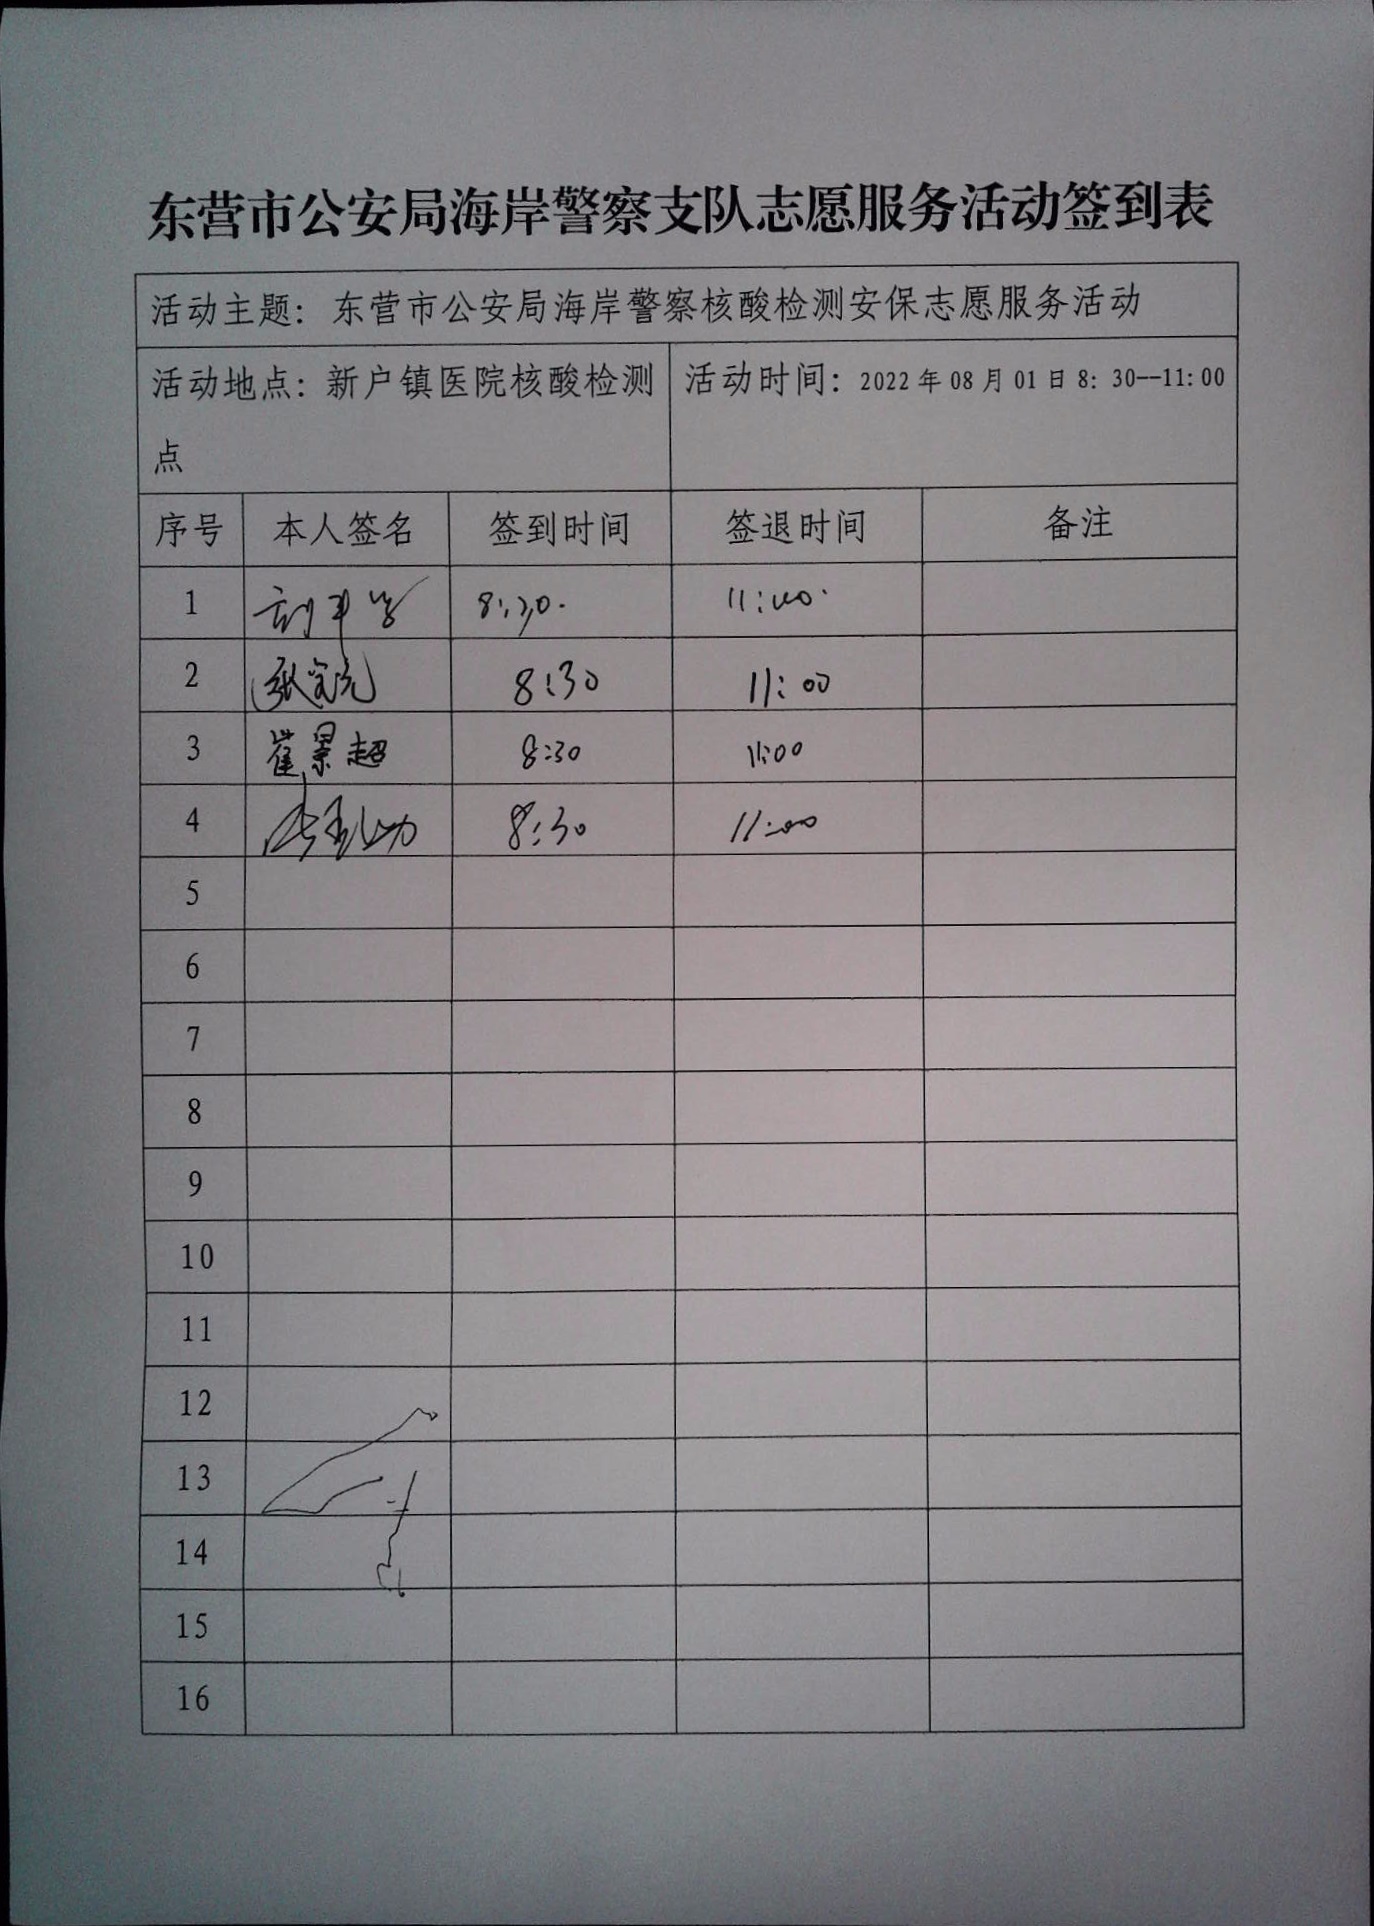 东营市公安局海岸警察支队志愿服务活动签到表
活动主题：东营市公安局海岸警察核酸检测安保志愿服务活动
活动地点：新户镇医院核酸检测点
活动时间：2022年08月01日8：30--11：00
序号 本人签名 签到时间 签退时间 备注
1 8:30. 11:00.
2 8:30 11:00
3 崔景超 8:30 11:00
4 8:30 11:00
5
6
7
8
9
10
11
12
13
14
15
16